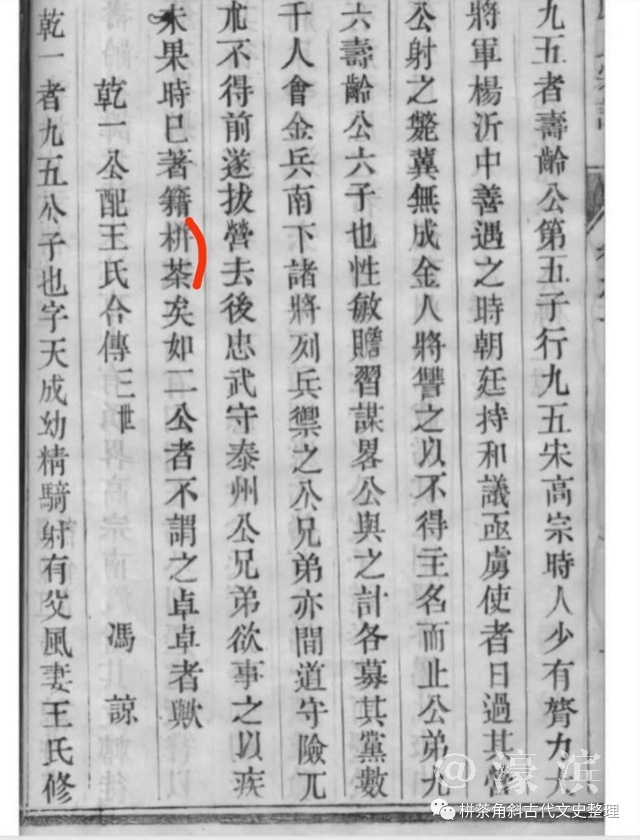 九五者壽齡公第五子行九五宋高宗時人少有膂力大
將軍楊沂中善遇之時朝廷持和議亟虜使者日過其
公射之斃冀無成金人將讐之以不得主名而止公弟九
六壽齡公六子也性敏贍習謀畧公與之計各募其黨數
千人會金兵南下諸將列兵禦之公兄弟亦間道守險兀
朮不得前遂拔營去後忠武守泰州公兄弟欲事之以疾
未果時已著籍栟茶矣如二公者不謂之卓卓者歟
乾一公配王氏合傳三世 馮諒
乾一者九五公子也字天成幼精騎射有父風妻王氏修
@濠滨
栟茶角斜古代文史整理